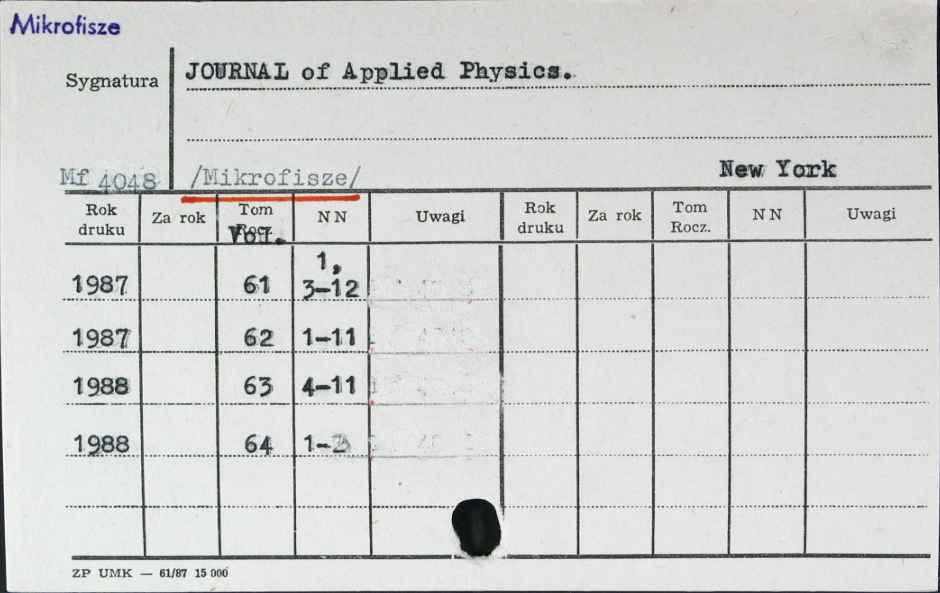 Mikrofisze
Sygnatura JOURNAL of Applied Physics.
Mf 4048 /Mikrofisze/ New York
Rok druku Za rok Tom Rocz. Vol. NN Uwagi Rok druku Za rok Tom Rocz. NN Uwagi
1987 61 1, 3-12
1987 62 1-11
1988 63 4-11
1988 64 1-
ZP UMK — 61/87 15 000